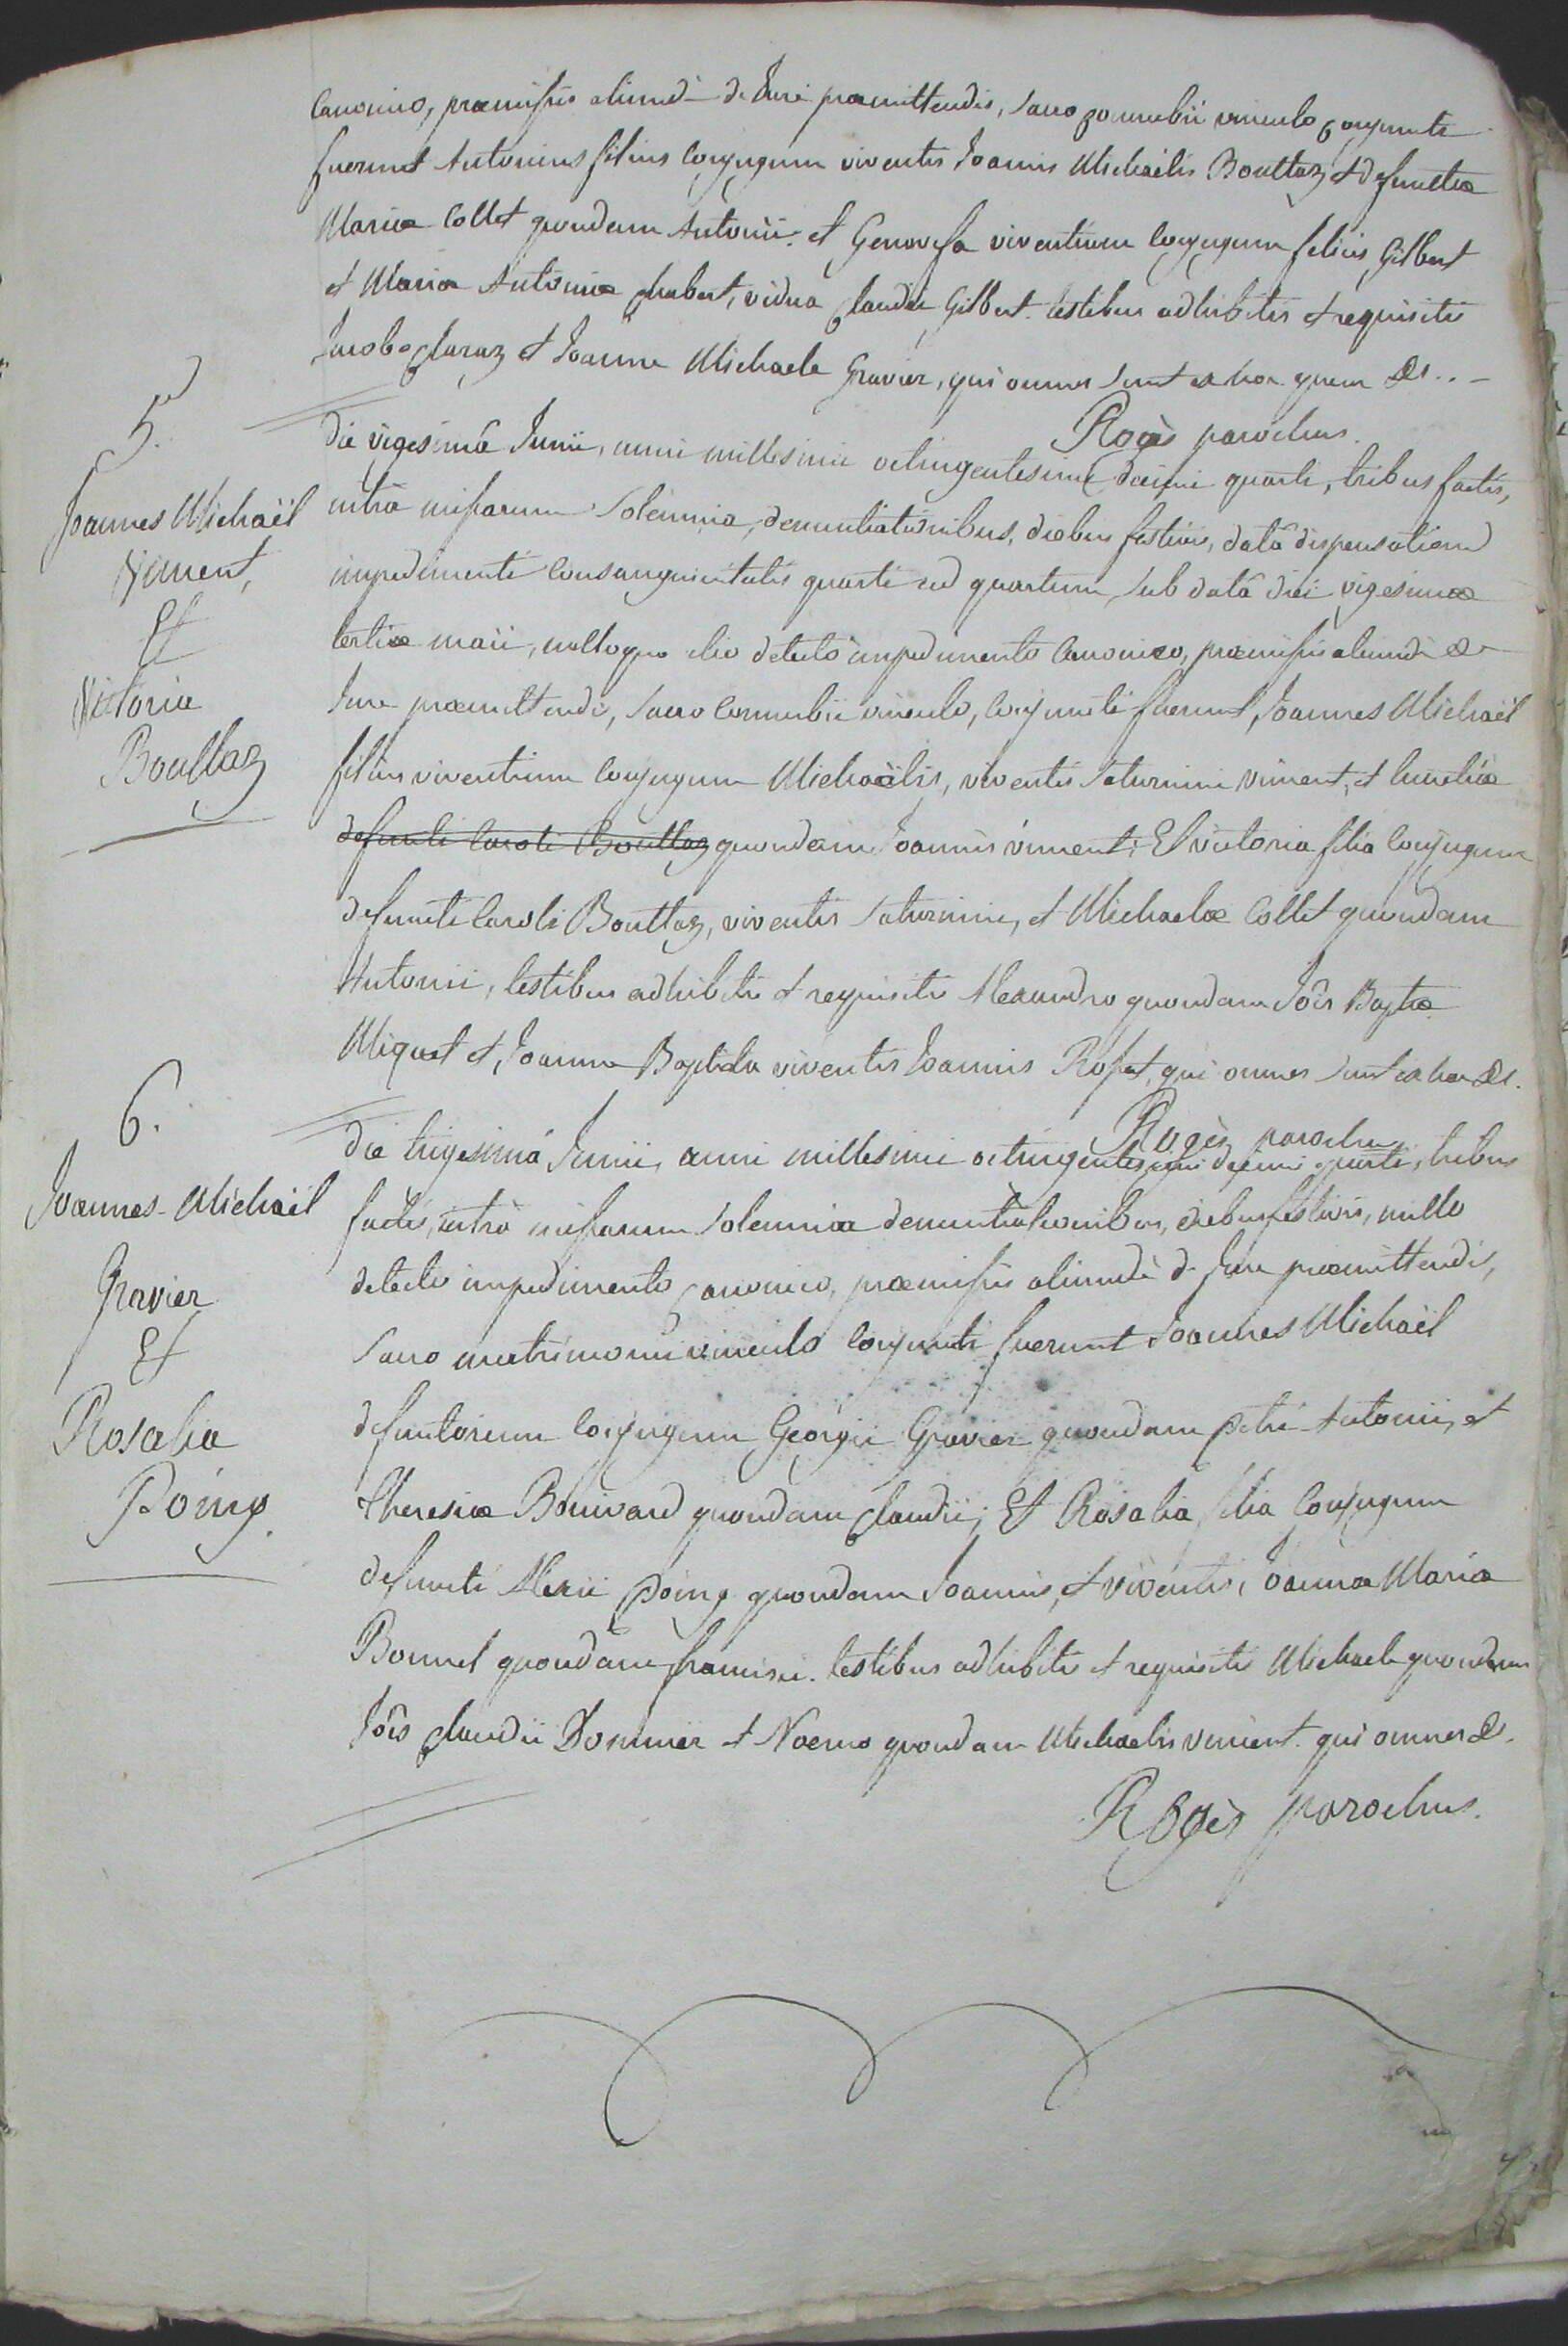 Canonico, præmissis aliundè de Jure præmittendis, sacro connubii vinculo conjuncti
fuerunt Antonius filius Conjugum viventis Joannis Michaëlis Bouttaz, et defunctæ
Mariæ Collet quondam Antonii; et Genovefa viventium Conjugum felicis Gilbert
et Maria Antonia Chabert, vidua Claudii Gilbert. testibus adhibitis et requisitis
Jacobo Claraz et Joanne Michaele Gravier, qui omnes sunt ex hac &c..
Rogès parochus.
5.
Joannes Michaël
Viment,
Et
Victoria
Bouttaz
Die vigesimâ Junii, anni millesimi octingentesimi decimi quarti, tribus factis,
intrà missarum solemnia, denuntiationibus, diebus festivis, datâ dispensatione
impedimenti Consanguinitatis quarti ad quartum, sub datâ diei vigesimæ
tertiæ maii, nulloque alio detecto impedimento Canonico, præmissis aliundè de
Jure præmittendis, sacro Connubii vinculo, Conjuncti fuerunt, Joannes Michaël
filius viventium Conjugum Michaëlis, viventis Saturnini viment, et
defuncti Caroli Bouttaz quondam Joannis viment; Et victoria filia Conjugum
defuncti Caroli Bouttaz, viventis Saturnini, et Michaelæ Collet quondam
Antonii, testibus adhibitis et requisitis Alexandro quondam Jôis Baptæ
Miquet et, Joanne Baptista viventis Joannis Rosset, qui omnes sunt ex hac &c.
Rogès parochus
6.
Joannes-Michaël
Gravier
Et
Rosalia
Poing
Die trigesimâ Junii, anni millesimi octingentesimi decimi quarti, tribus
factis, intrà missarum solemnia denuntiationibus, diebus festivis, nullo
detecto impedimento Canonico, præmissis aliundè de Jure præmittendis,
sacro matrimonii vinculo Conjuncti fuerunt Joannes Michaël
defunctorum Conjugum Georgii Gravier quondam Petri Antonii, et
theresiæ Bouivard quondam Claudii; Et Rosalia, filia Conjugum
defuncti Alexii Poing quondam Joannis, et viventis, Joannæ Maria
Bonnel quondam francisci. testibus adhibitis et requisitis Michaele quondam
Jôis Claudii Dommer et Noemo quondam Michaelis viment. qui omnes &c.
Rogès parochus.